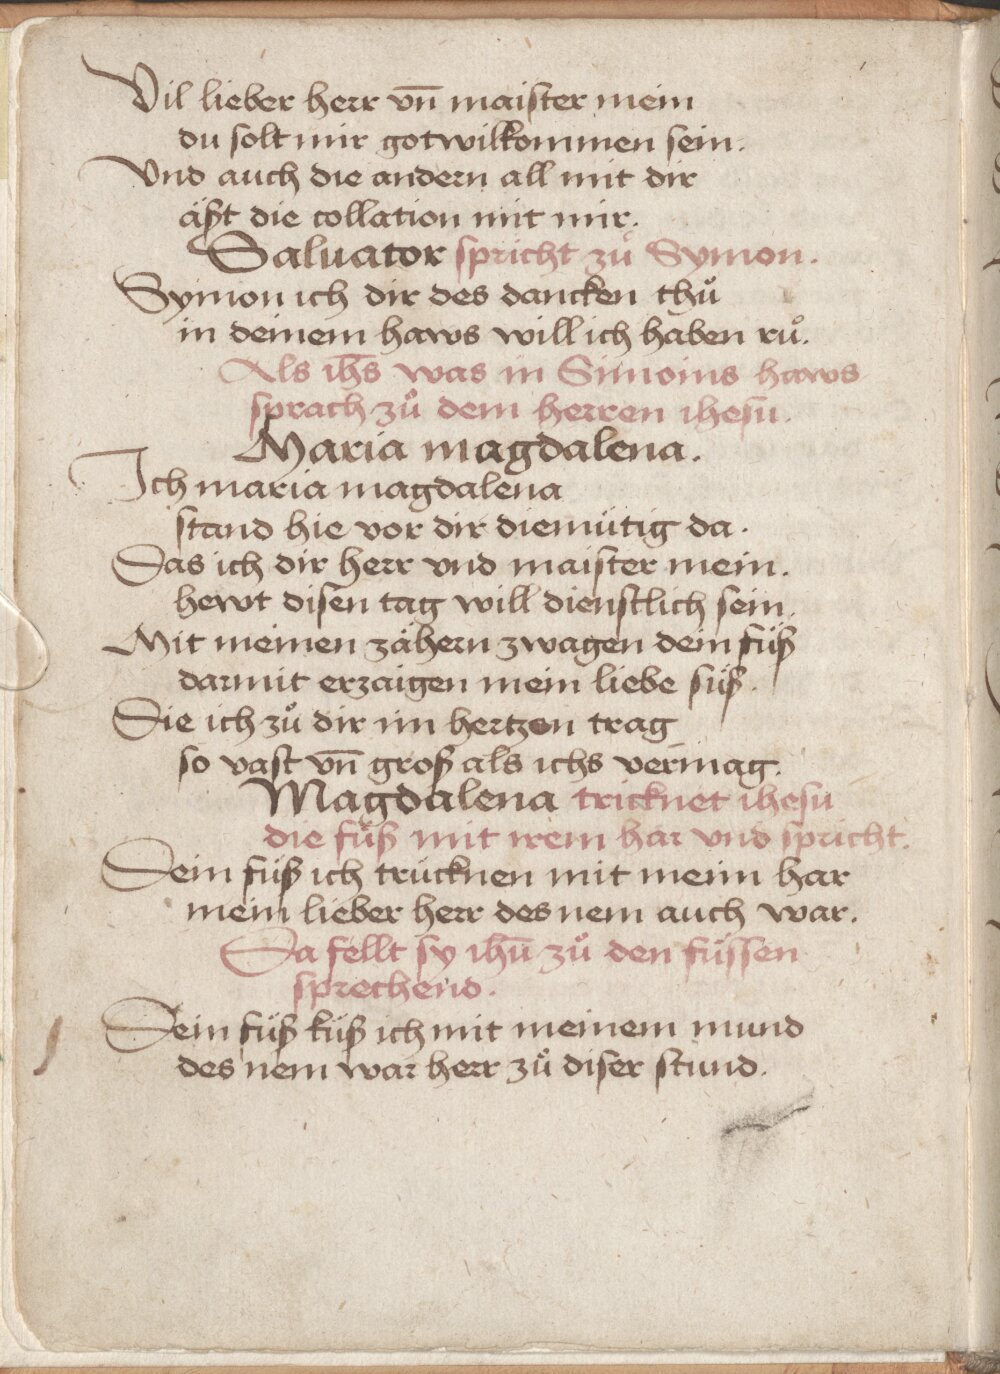 Vil lieber herr vn̄ maister mein
du solt mir gotwilkommen sein.
Vnd auch die andern all mit dir
äßt die collation mit mir.
Saluator spricht zů Symon.
Symon ich dir des dancken thů
in deinem haws will ich haben rů.
Als ih̄s was in Simoins haws
sprach zů dem herren ihesu.
Maria magdalena.
Ich maria magdalena
stand hie vor dir diemütig da.
Das ich dir herr vnd maister mein.
hewt disen tag will dienstlich sein.
Mit meinen zähern zwagen dein füß
darmit erzaigen mein liebe süß.
Die ich zů dir im hertzen trag
so vast vn̄ groß als ichs vermag.
Magdalena tricknet ihesu
die füß mit irem har vnd spricht.
Dein füß ich trücknen mit meim har
mein lieber herr des nem auch war.
Da fellt sy ih̄u zů den füssen
sprechend.
Dein füß küß ich mit meinem mund
des nem war herr zů diser stund.